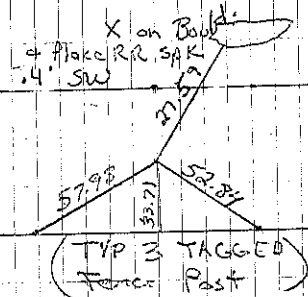 X on Bould.
& Place RR SpK
.4' SW
27.59
57.98
33.71
52.84
(TYP 3 TAGGED)
Fence Post